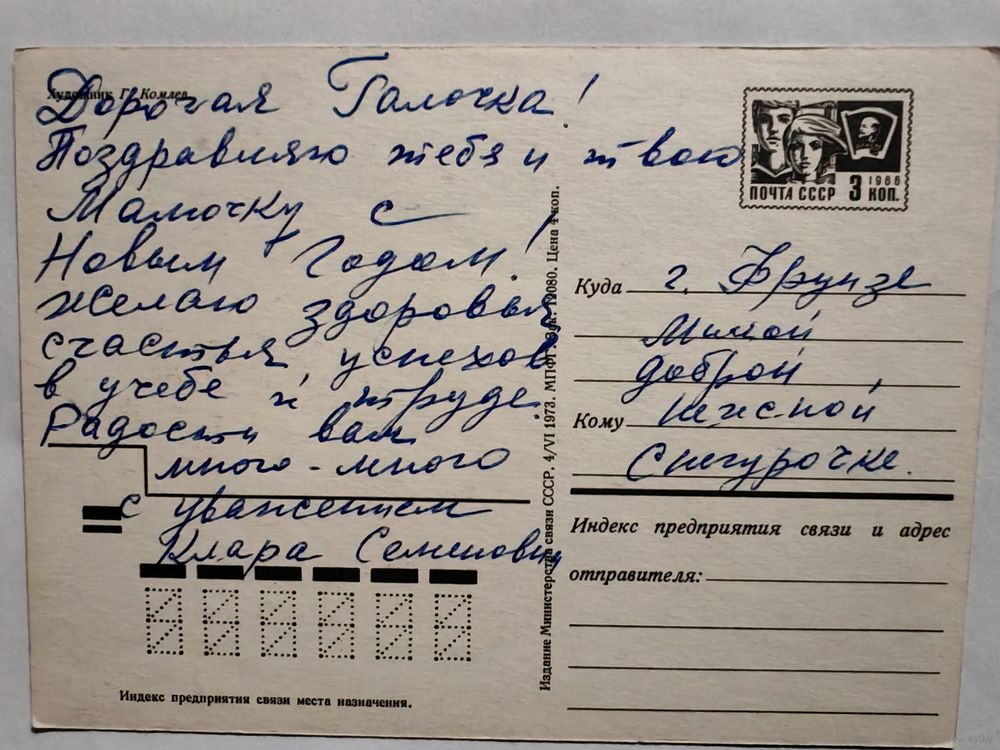 Художник Г. Комлев
Дорогая Галочка!
Поздравляю тебя и твою
Мамочку с
Новым Годом!
Желаю здоровья
счастья успехов
в учебе и труде.
Радости вам
много-много
с уважением
Клара Семеновн
ПОЧТА СССР 3 1966 КОП.
Издание Министерства связи СССР. 4/VI 1973. МПФГ Зак. 19080. Цена 4 коп.
Куда г. Фрунзе
милой
доброй,
Кому нежной
Снегурочке.
Индекс предприятия связи и адрес
отправителя:
Индекс предприятия связи места назначения.